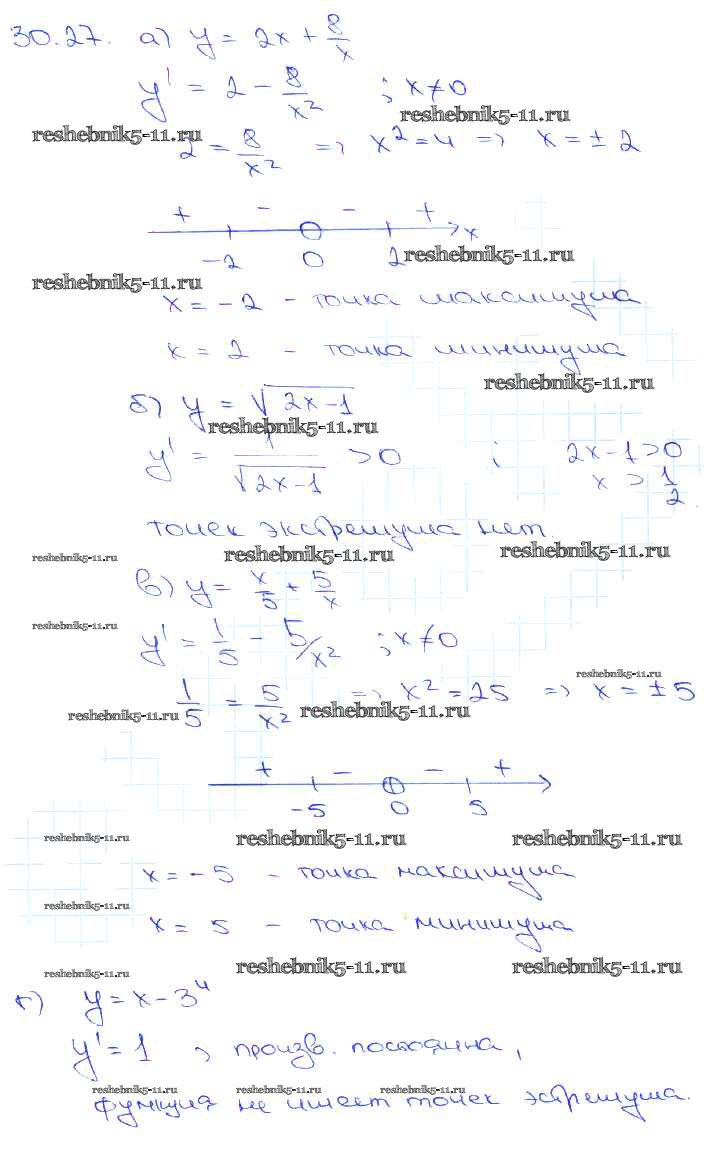 30.27. а) y = 2x + 8/x
y' = 2 - 8/x² ; x ≠ 0
reshebnik5-11.ru
reshebnik5-11.ru
2 = 8/x² => x² = 4 => x = ± 2
+ - - + x
-2 0 2
reshebnik5-11.ru
reshebnik5-11.ru
x = -2 - точка максимума
x = 2 - точка минимума
reshebnik5-11.ru
б) y = √2x-1
reshebnik5-11.ru
y' = 1/√2x-1 > 0 ; 2x-1 > 0
x > 1/2.
точек экстремума нет.
reshebnik5-11.ru reshebnik5-11.ru reshebnik5-11.ru
в) y = x/5 + 5/x
reshebnik5-11.ru
y' = 1/5 - 5/x² ; x ≠ 0
reshebnik5-11.ru
1/5 = 5/x² => x² = 25 => x = ± 5
reshebnik5-11.ru reshebnik5-11.ru
+ - - +
-5 0 5
reshebnik5-11.ru reshebnik5-11.ru reshebnik5-11.ru
x = -5 - точка максимума
reshebnik5-11.ru
x = 5 - точка минимума
reshebnik5-11.ru reshebnik5-11.ru reshebnik5-11.ru
г) y = x - 3⁴
y' = 1 , произв. постоянна,
reshebnik5-11.ru reshebnik5-11.ru reshebnik5-11.ru
функция не имеет точек эстремума.